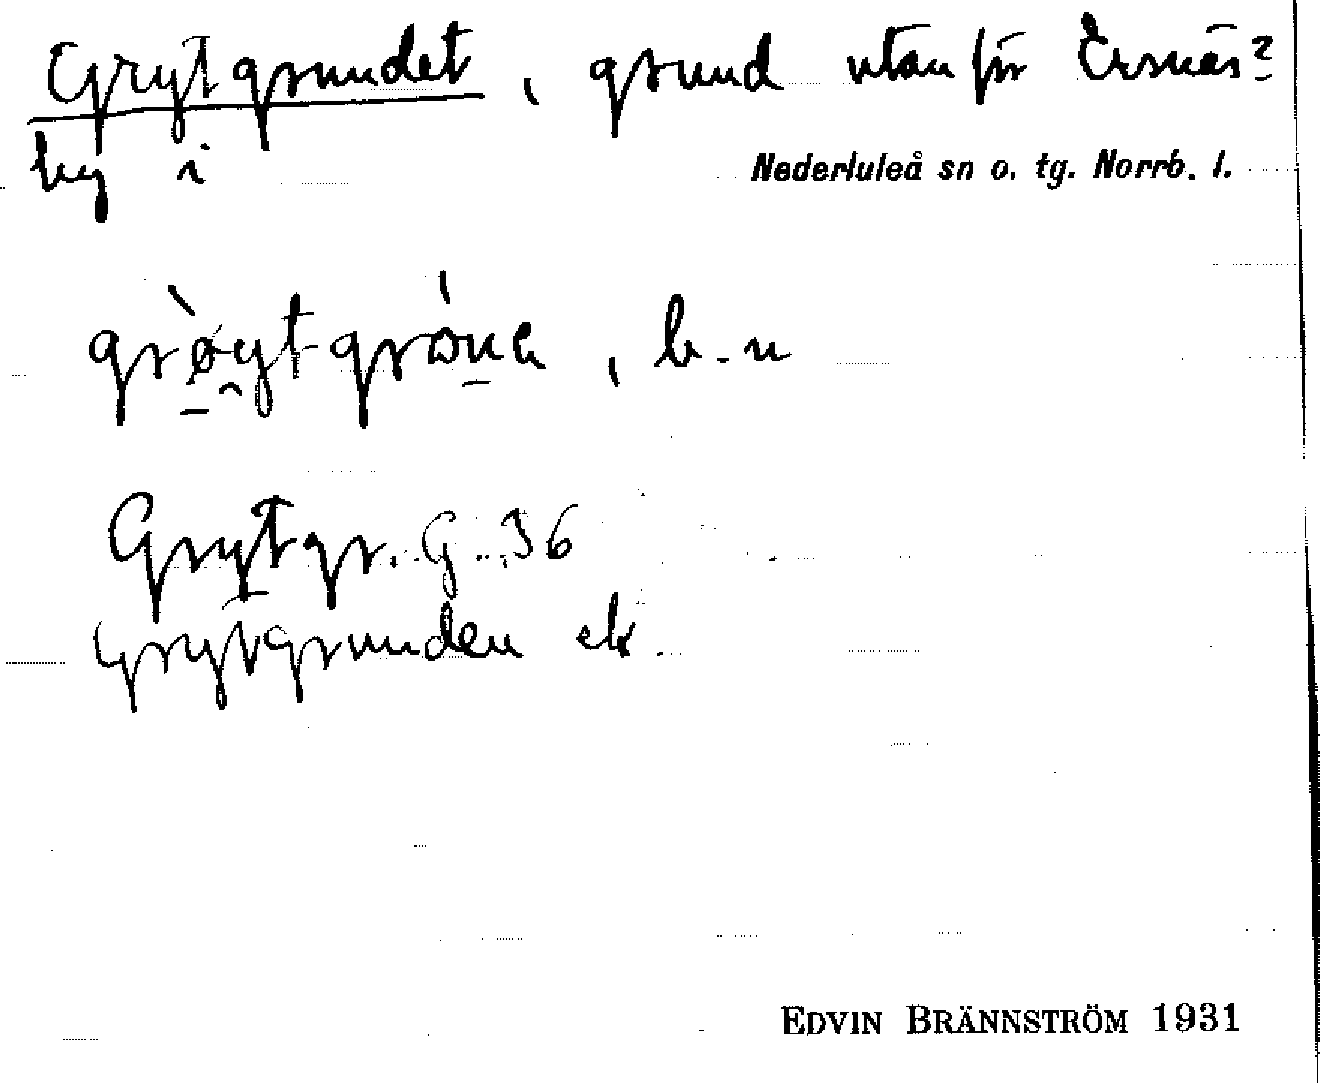 Grytgrundet, grund utanför Ersnäs?
by i Nederluleå sn o. tg. Norrb. l.
grø̀ytgrön , b-n
Grytgr. G. 36
Grytgrunden ek.
EDVIN BRÄNNSTRÖM 1931